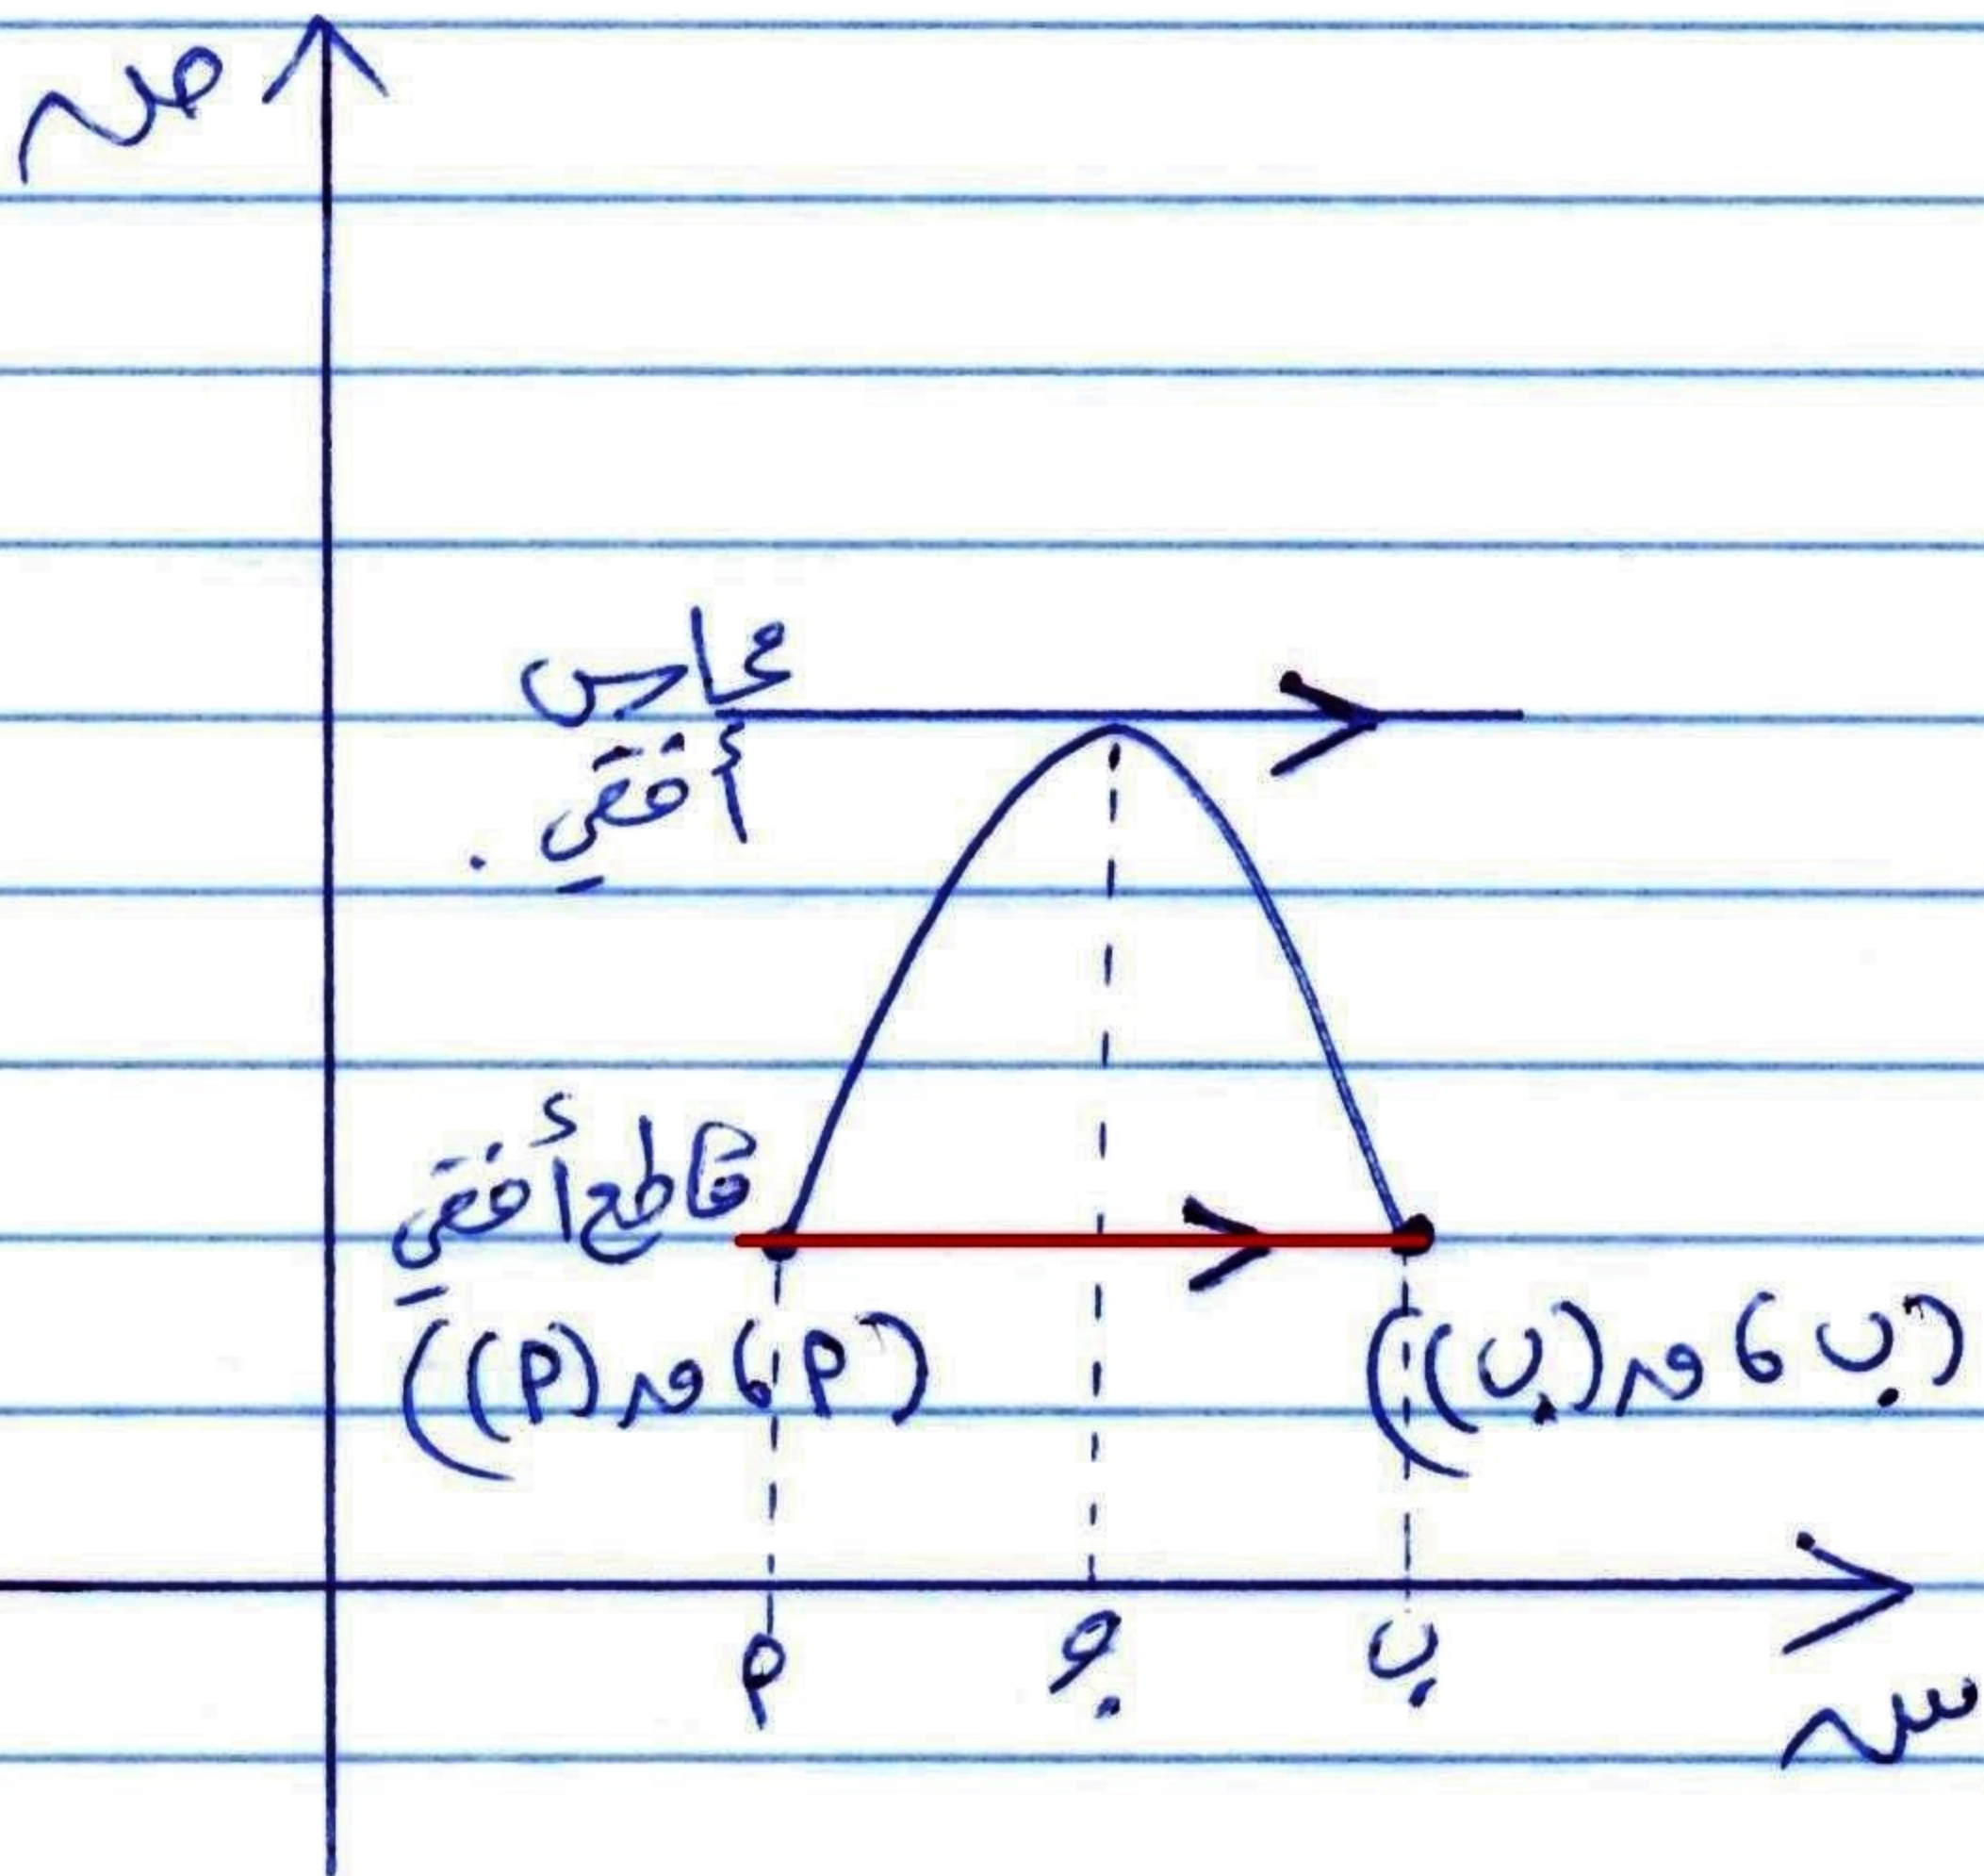 ص
مماس
أفقي .
قاطع أفقي
(أ ، ق(أ))
(ب ، ق(ب))
أ
جـ
ب
س